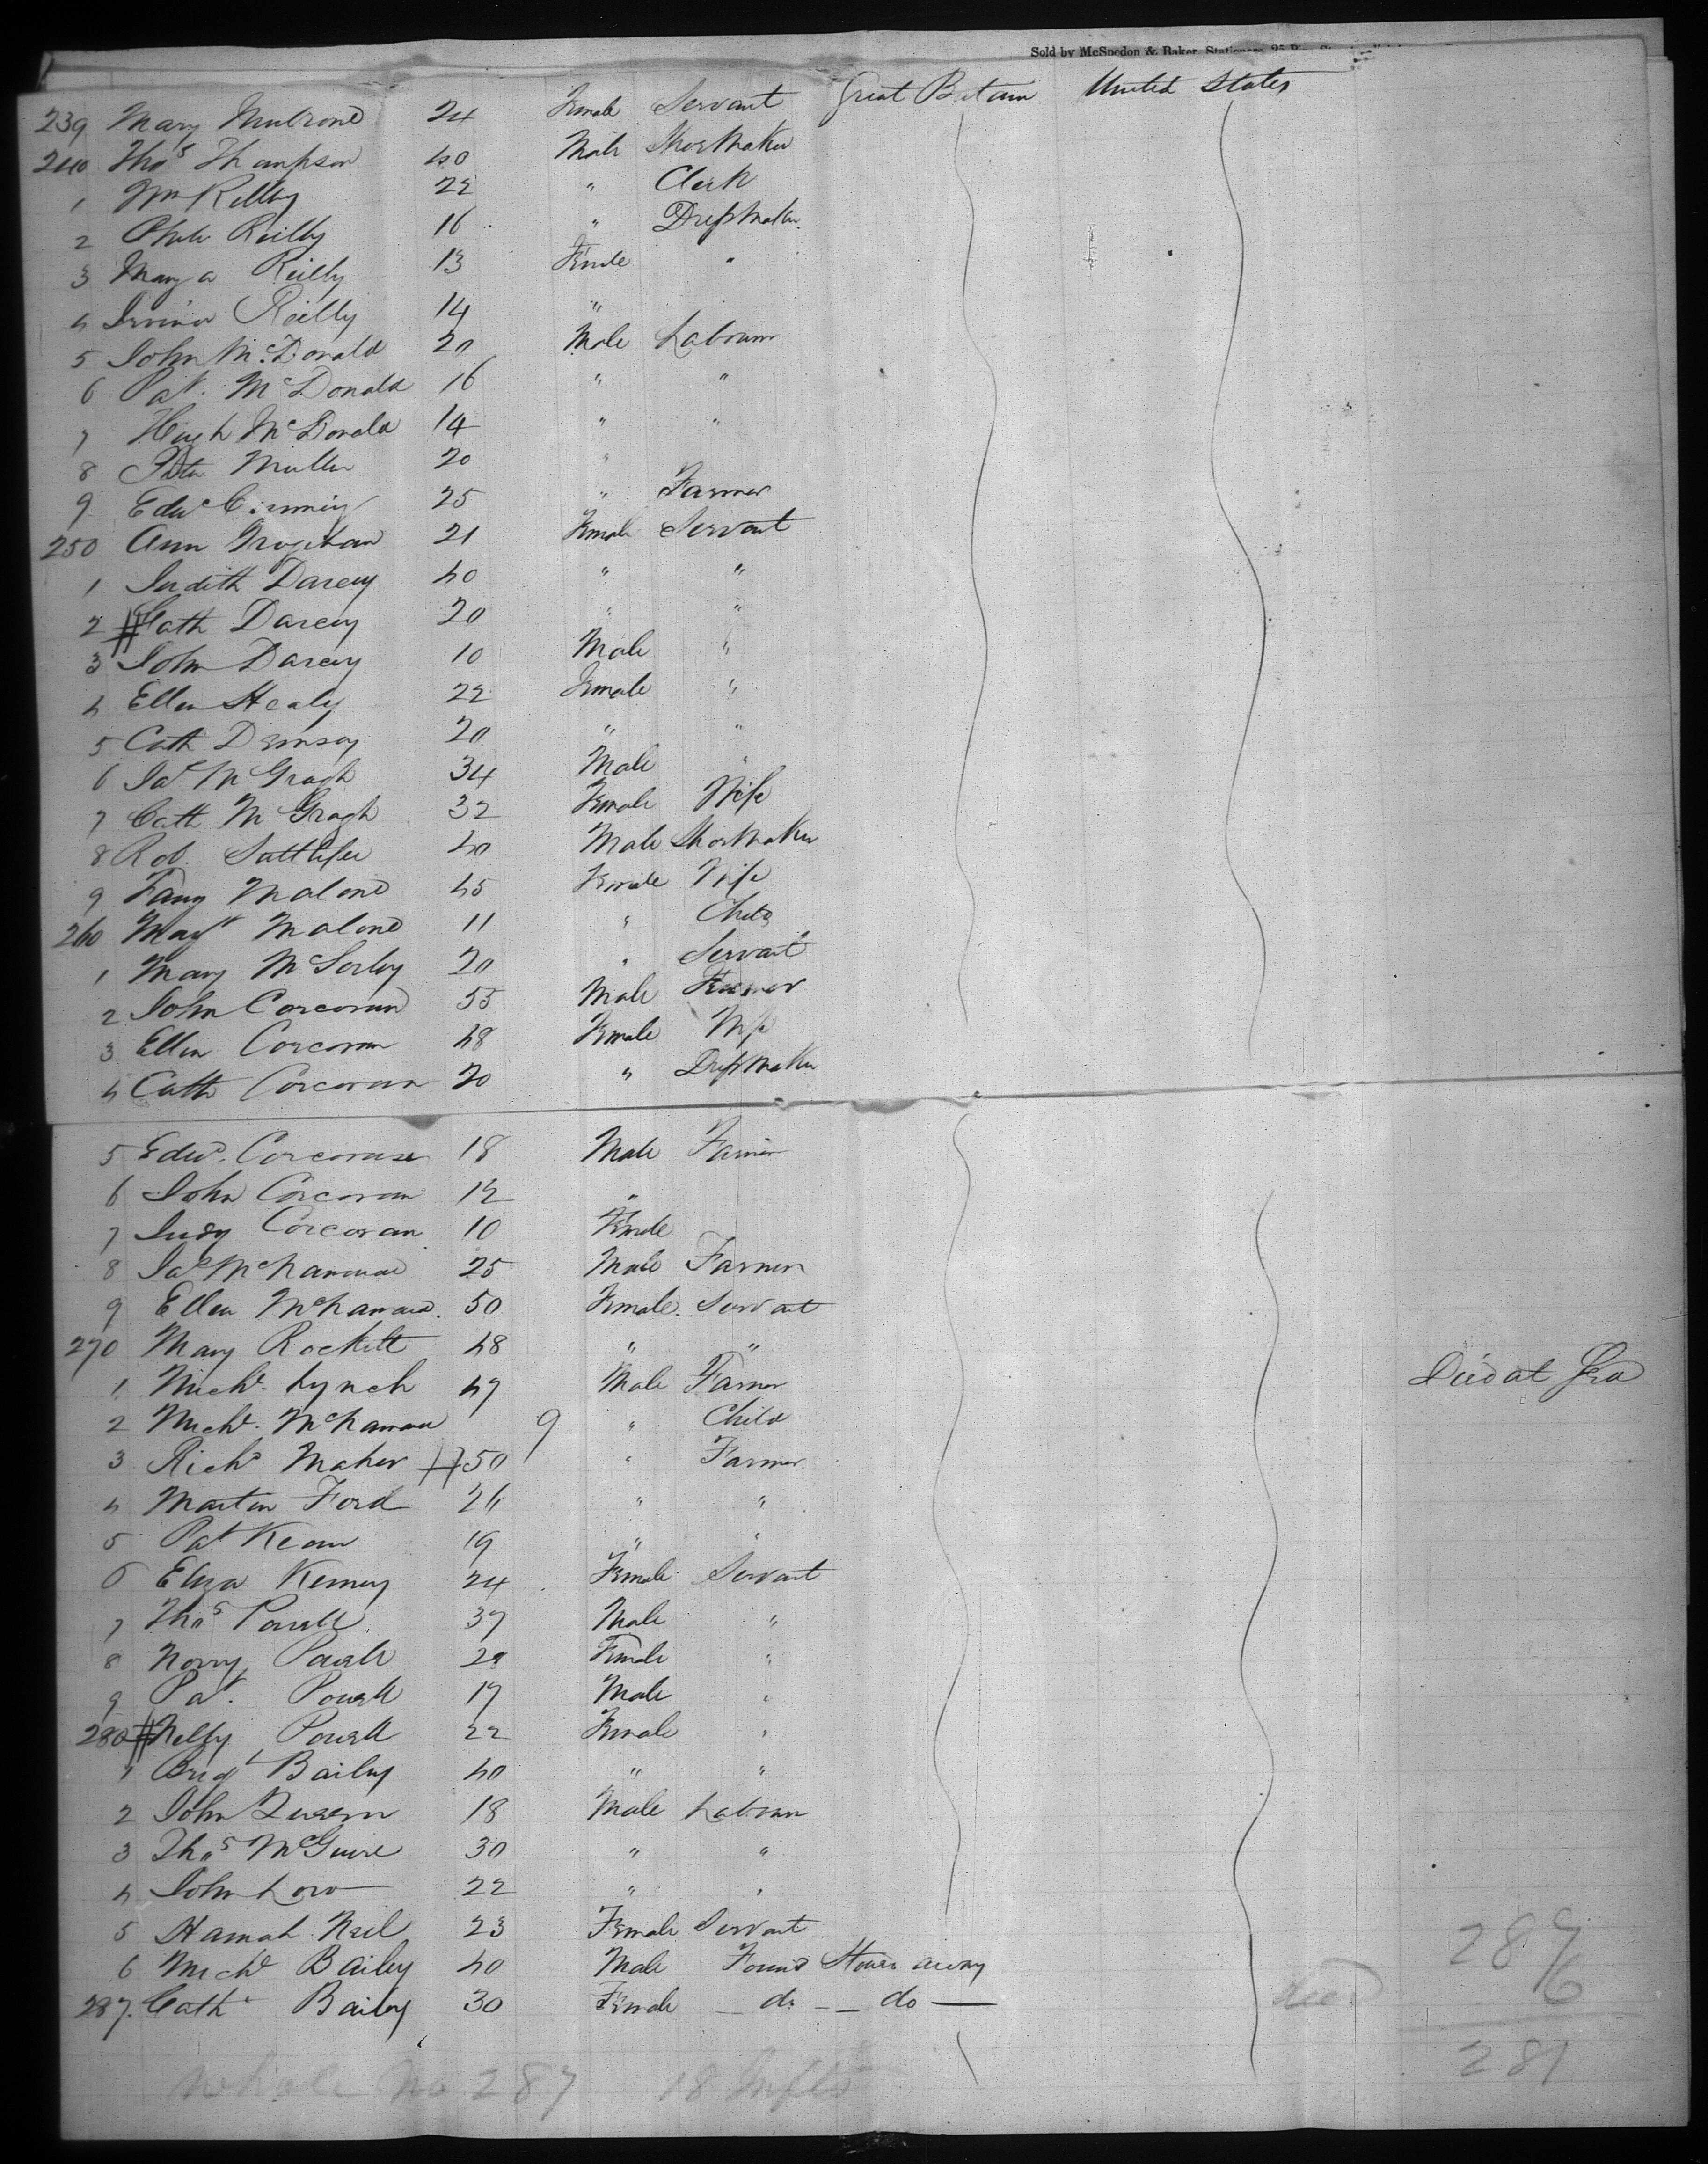 Sold by McSpedon & Baker, Stationers, 25
239 Mary Mulrone 24 Female Servant Great Britain United States
240 Thos Thompson 40 Male Shoe Maker
1 Wm Reilly 22 " Clerk
2 Reilly 16 " Dress Maker
3 Mary a Reilly 13 Female "
4 Reilly 14 "
5 John McDonald 20 Male Labourer
6 Pat. McDonald 16 " "
7 Hugh McDonald 14 " "
8 Peter Muller 20 "
9 Edwd 25 " Farmer
250 Ann Groghan 21 Female Servant
1 Judith Darcey 40 " "
2 # Cath Darcey 20 " "
3 John Darcey 10 Male "
4 Ellen Healy 22 Female "
5 Cath Demsey 20 " "
6 Jas McGragh 34 Male "
7 Cath McGragh 32 Female Wife
8 Rob. Suttlife 40 Male Shoe Maker
9 Fany Malone 45 Female Wife
260 Magt Malone 11 " Child
1 Mary McSorley 20 " Servant
2 John Corcoran 55 Male Farmer
3 Ellen Corcoran 48 Female Wife
4 Cath Corcoran 20 " Dress Maker
5 Edwd. Corcoran 18 Male Farmer
6 John Corcoran 12 "
7 Judy Corcoran 10 Female
8 Jas McNamara 25 Male Farmer
9 Ellen McNamara. 50 Female. Servant
270 Mary Rockett 48 " "
1 Michl. Lynch 47 Male Farmer Died at Sea
2 Michl. McNamara 9 " Child
3 Richd Maher # 50 " Farmer
4 Martin Ford 26 " "
5 Pat Kean 19 " "
6 Eliza Kenney 24 Female Servant
7 Thos Powell 37 Male "
8 Norry Powell 29 Female "
9 Pat. Powell 17 Male "
280 # Nelly Powell 22 Female "
1 Brigt Bailey 40 " "
2 John 18 Male Labourer
3 Thos McGuire 30 " "
4 John Low 22 " "
5 Hannah Neil 23 Female Servant
6 Michl Bailey 40 Male Found Stow away 287
287. Cath Bailey 30 Female — do — — do — died 6
281
Whole No 287 18 Infts